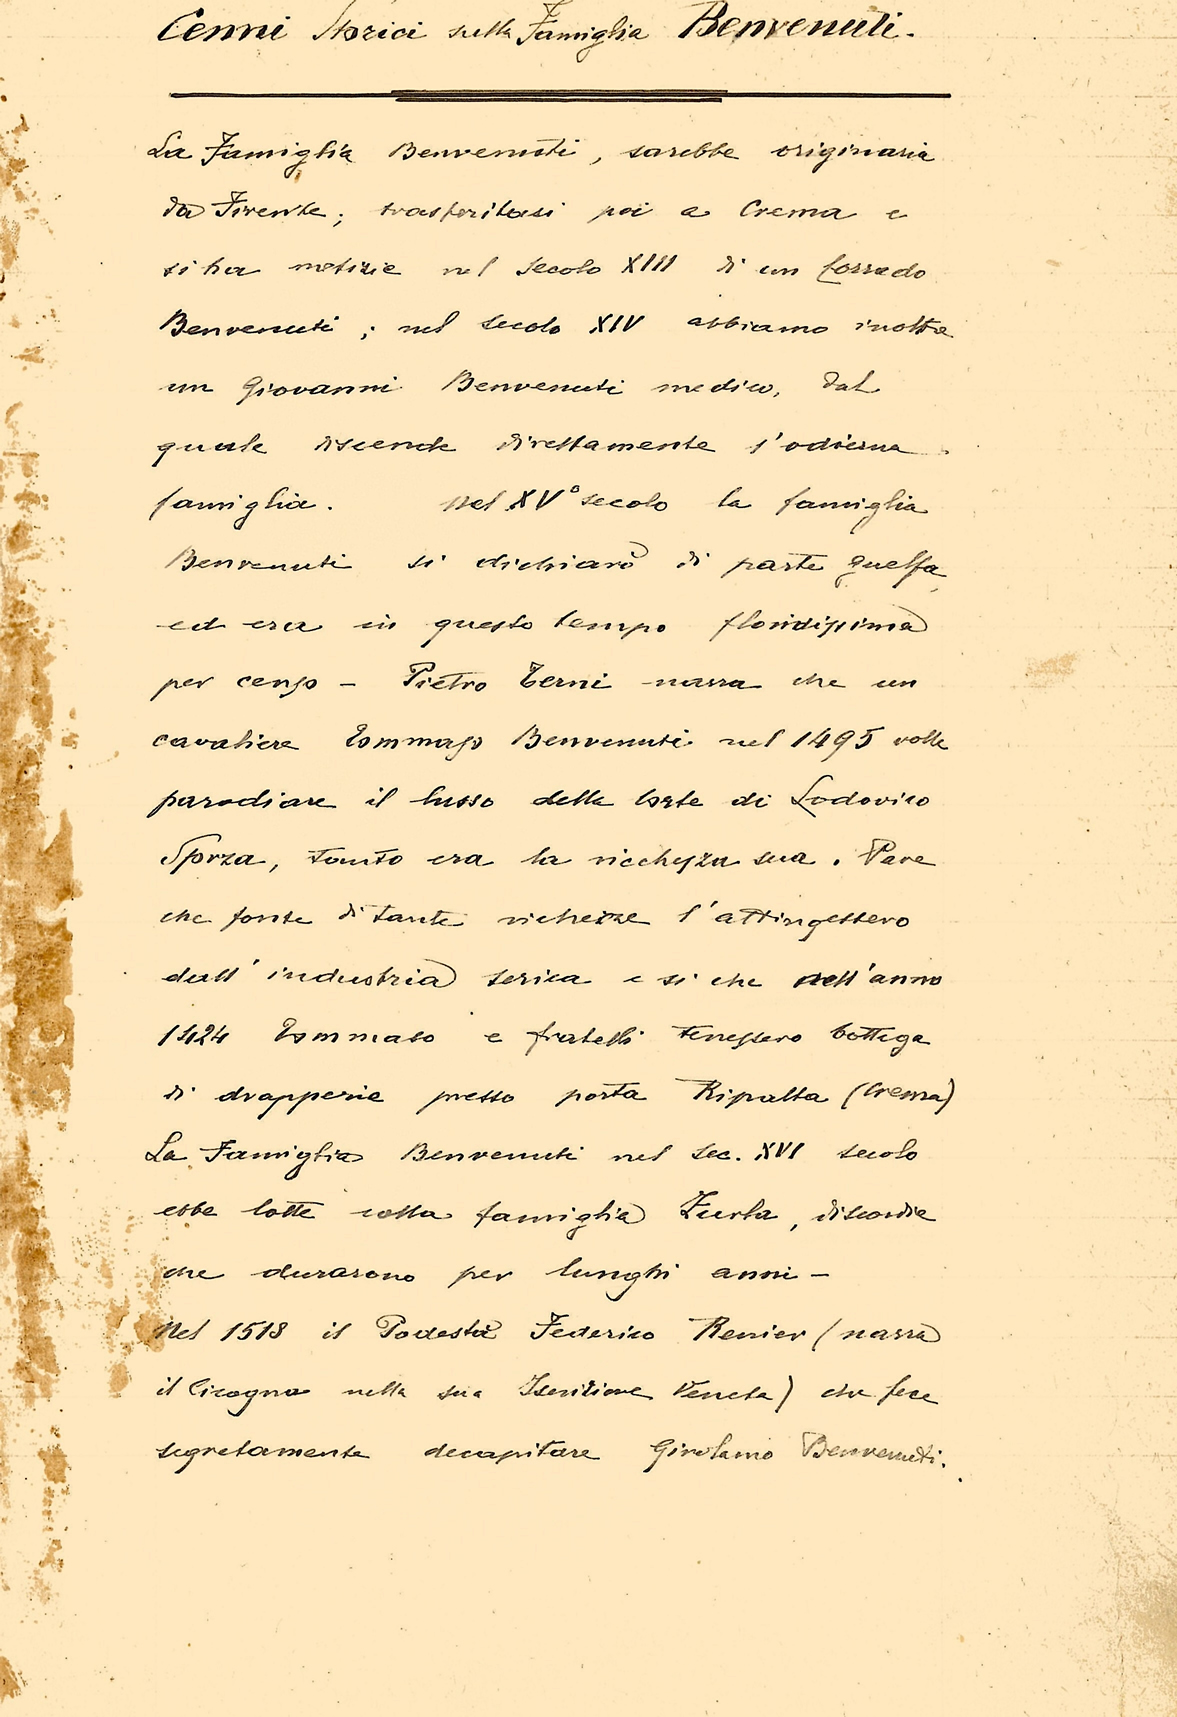 Cenni Storici sulla Famiglia Benvenuti.
La Famiglia Benvenuti, sarebbe originaria
da Firenze; trasferitasi poi a Crema e
si ha notizie nel secolo XIII di un Corrado
Benvenuti; nel secolo XIV abbiamo inoltre
un Giovanni Benvenuti medico, dal
quale discende direttamente l'odierna
famiglia. Nel XV° secolo la famiglia
Benvenuti si dichiarò di parte guelfa
ed era in questo tempo floridissima
per censo - Pietro Terni narra che un
cavaliere Tommaso Benvenuti nel 1495 volle
parodiare il lusso della Corte di Lodovico
Sforza, tanto era la ricchezza sua. Pare
che fonte di tante richezze l'attingessero
dall'industria serica e si che nell'anno
1424 Tommaso e fratelli tenessero bottega
di drapperie presso porta Ripalta (Crema)
La Famiglia Benvenuti nel sec. XVI secolo
ebbe lotte colla famiglia Zurla, discordie
che durarono per lunghi anni -
Nel 1518 il Podestà Federico Renier (narra
il Cicogna nella sua Iscrizione Veneta) che fece
segretamente decapitare Girolamo Benvenuti.